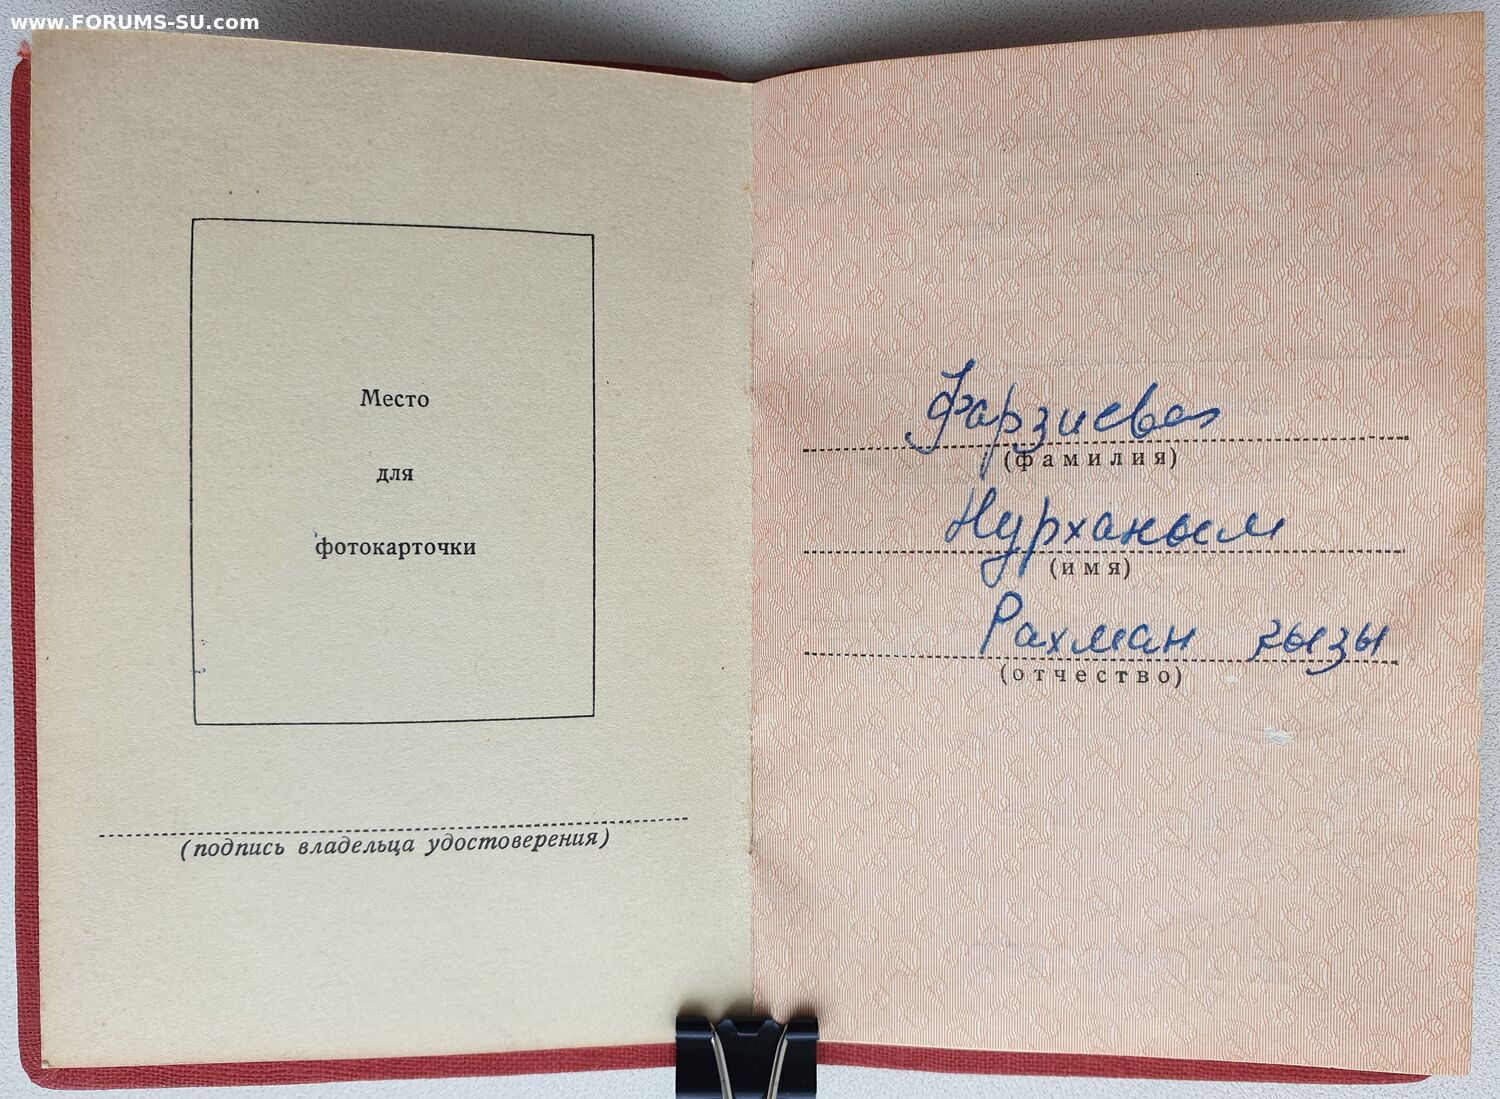 www.FORUMS-SU.com
Место
для
фотокарточки
(подпись владельца удостоверения)
Фарзиева
(фамилия)
Нурханым
(имя)
Рахман кызы
(отчество)